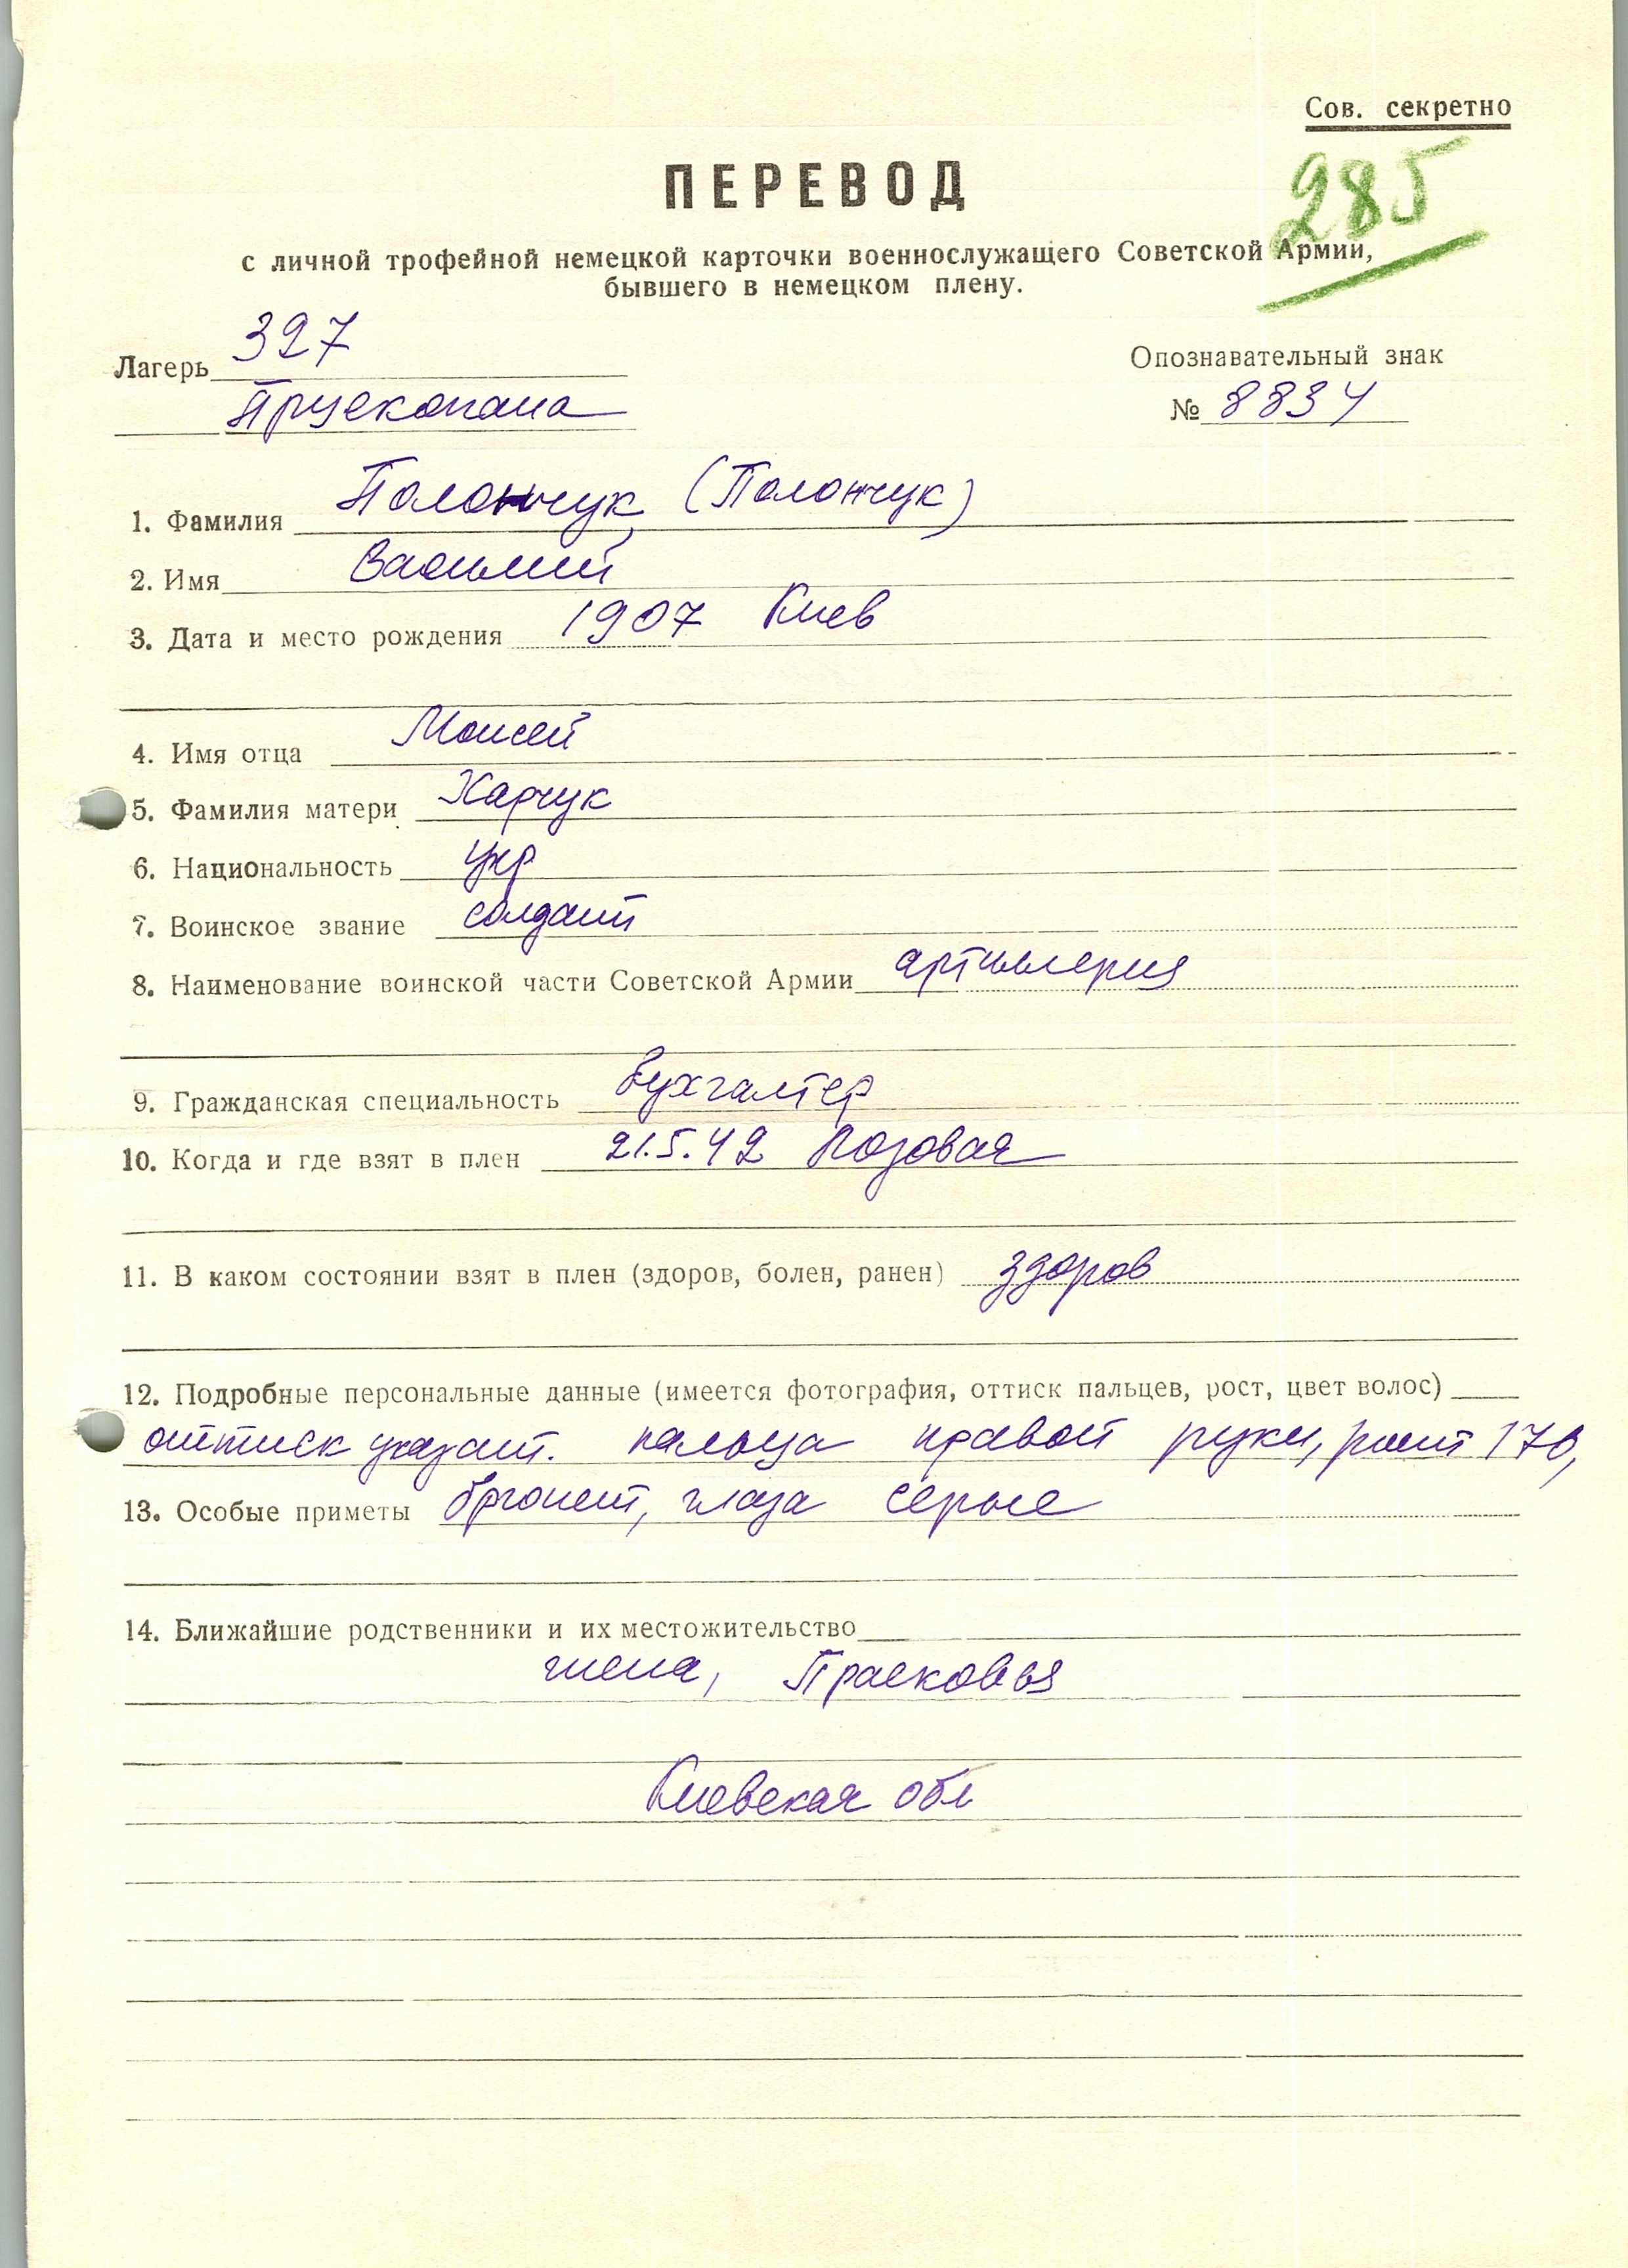 Сов. секретно
ПЕРЕВОД
285
с личной трофейной немецкой карточки военнослужащего Советской Армии,
бывшего в немецком плену.
Лагерь 327
Опознавательный знак
Прускопана
№ 8834
1. Фамилия Полончук (Полончук)
2. Имя Василий
3. Дата и место рождения 1907 Киев
4. Имя отца Моисей
5. Фамилия матери Харчук
6. Национальность укр
7. Воинское звание солдат
8. Наименование воинской части Советской Армии артиллерия
9. Гражданская специальность бухгалтер
10. Когда и где взят в плен 21.5.42 Лозовая
11. В каком состоянии взят в плен (здоров, болен, ранен) здоров
12. Подробные персональные данные (имеется фотография, оттиск пальцев, рост, цвет волос)
оттиск указат. пальца правой руки, рост 170,
13. Особые приметы брюнет, глаза серые
14. Ближайшие родственники и их местожительство
жена, Прасковья
Киевская обл